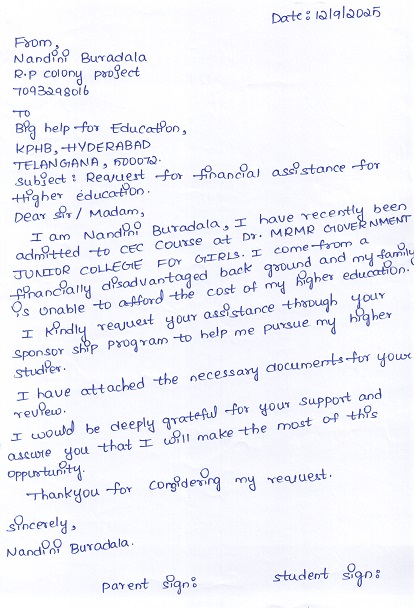 Date: 12/9/2025
From,
Nandini Buradala
R.P colony project
7093298016
TO
Big help for Education,
KPHB, HYDERABAD
TELANGANA, 500072.
Subject: Request for financial assistance for
Higher education.
Dear Sir / Madam,
I am Nandini Buradala, I have recently been
admitted to CEC Course at Dr. MRMR GOVERNMENT
JUNIOR COLLEGE FOR GIRLS. I come from a
financially disadvantaged back ground and my family
is unable to afford the cost of my higher education.
I kindly request your assistance through your
sponsor ship program to help me pursue my higher
studies.
I have attached the necessary documents for your
review.
I would be deeply grateful for your support and
assure you that I will make the most of this
oppurtunity.
Thankyou for considering my request.
Sincerely,
Nandini Buradala.
parent sign: student sign: